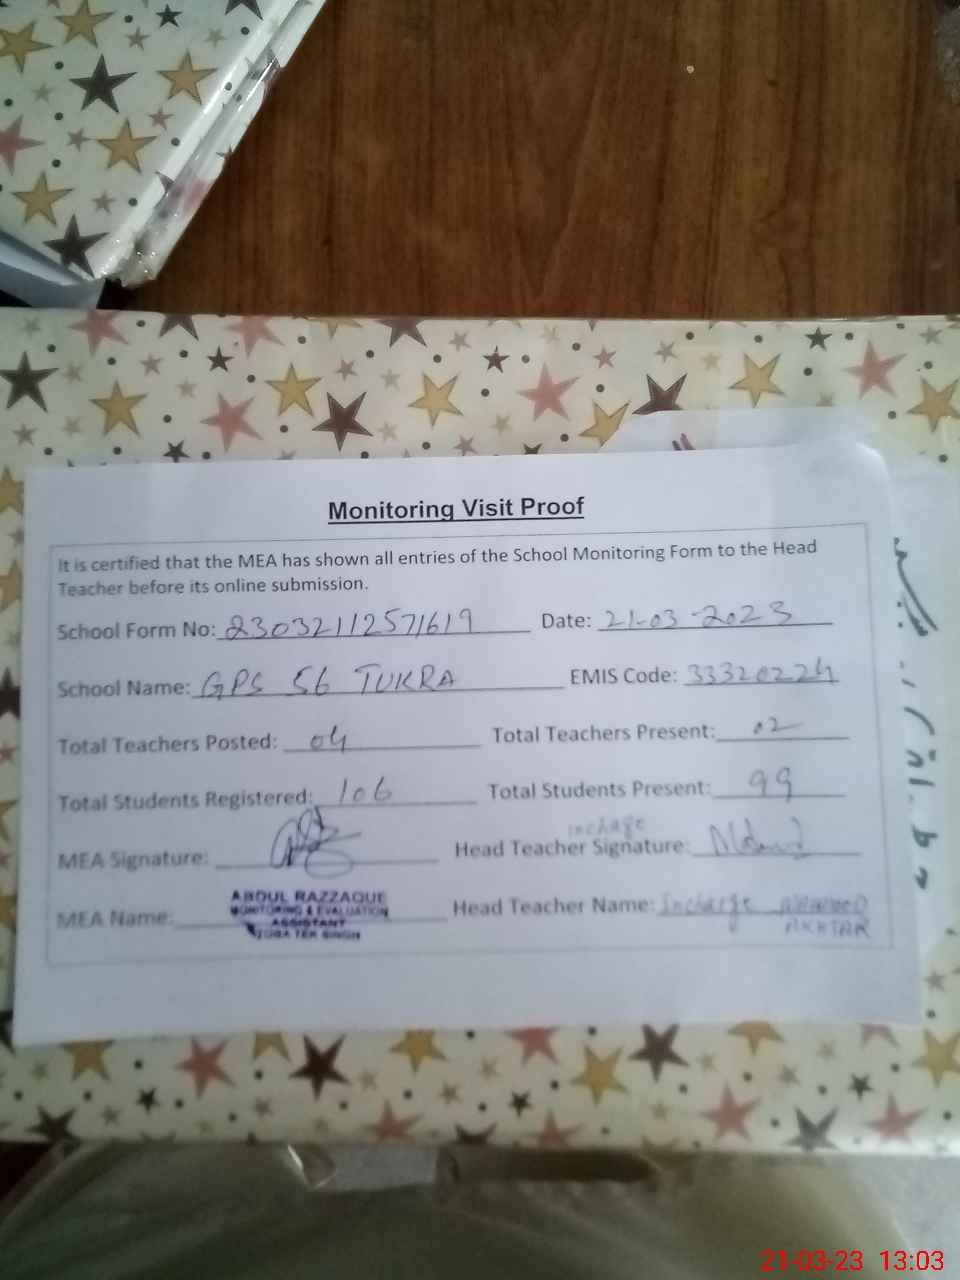 Monitoring Visit Proof
It is certified that the MEA has shown all entries of the School Monitoring Form to the Head
Teacher before its online submission.
School Form No: 23032112571619 Date: 21-03-2023
School Name: GPS 56 TUKRA EMIS Code: 33320224
Total Teachers Posted: 04 Total Teachers Present: 02
Total Students Registered: 106 Total Students Present: 99
incharge
MEA Signature: Head Teacher Signature:
MEA Name: ABDUL RAZZAQUE Head Teacher Name: Incharge
MONITORING & EVALUATION
ASSISTANT AKHTAR
TOBA TEK SINGH
21-03-23 13:03